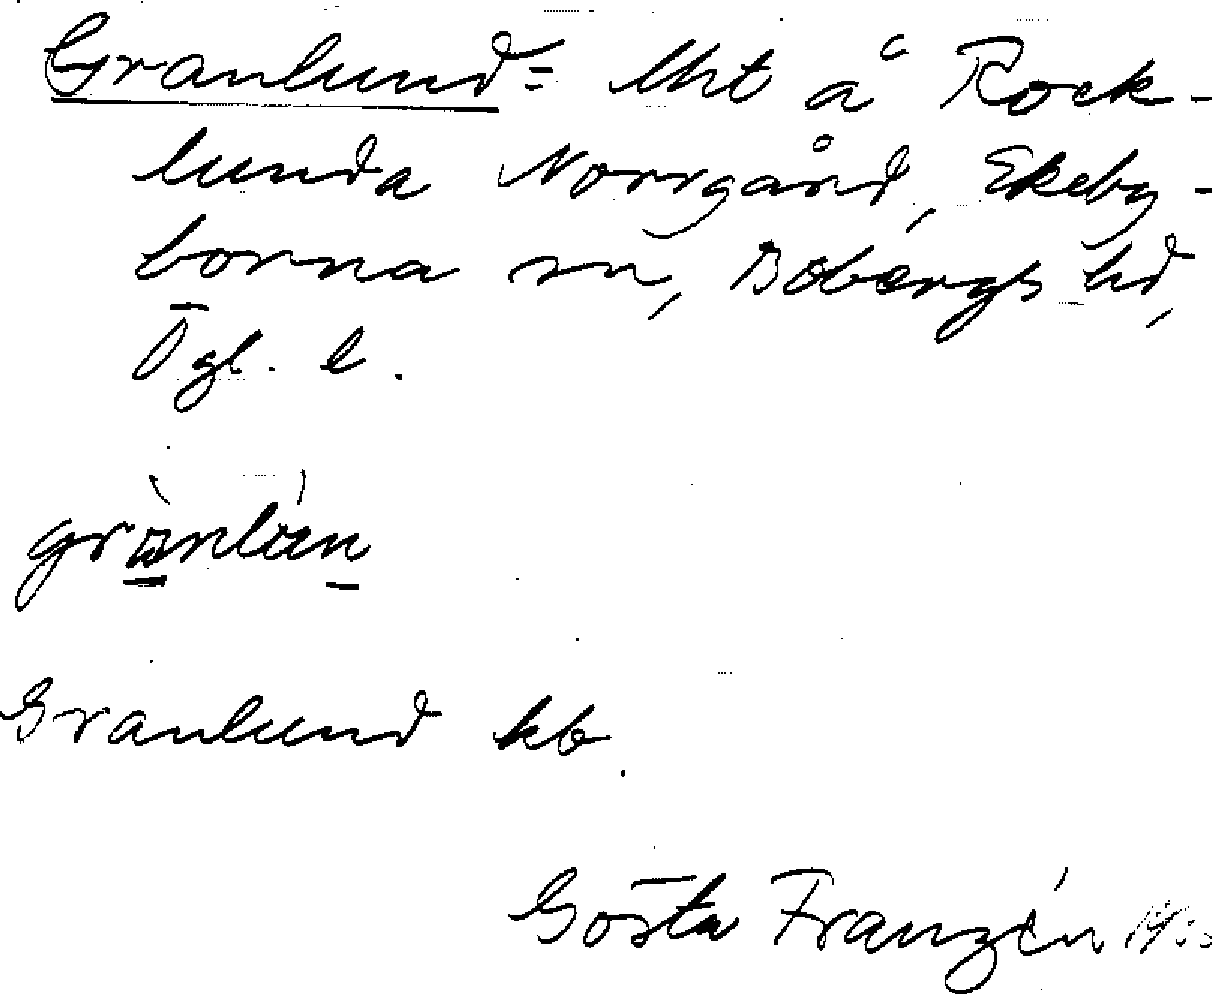 Granlund = lht å Rock-
lunda Norrgård, Ekeby-
borna sn, Bobergs hd,
Ögl. l.
grànlún
Granlund kb
Gösta Franzén